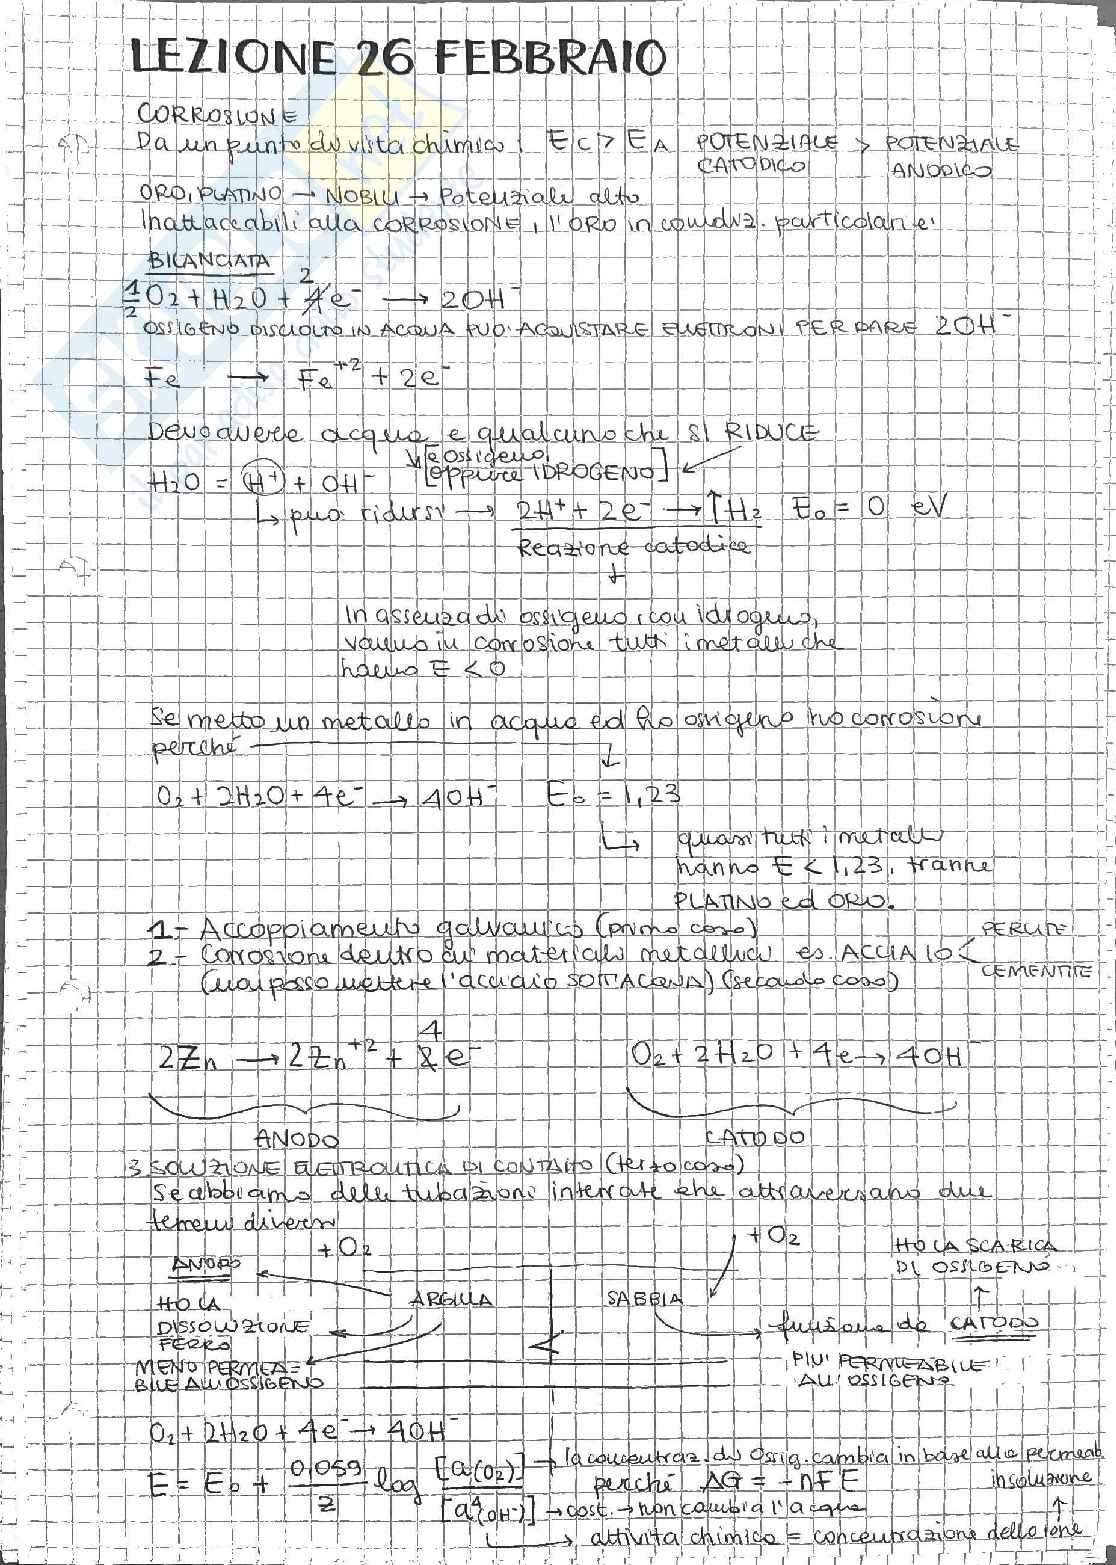 LEZIONE 26 FEBBRAIO
CORROSIONE
Da un punto di vista chimico: EC > EA POTENZIALE CATODICO > POTENZIALE ANODICO
ORO, PLATINO → NOBILI → Potenziale alto
Inattaccabili alla CORROSIONE, l'ORO in condiz. particolari e'
BILANCIATA
1/2 O2 + H2O + 2 e- → 2OH-
OSSIGENO DISCIOLTO IN ACQUA PUO' ACQUISTARE ELETTRONI PER DARE 2OH-
Fe → Fe+2 + 2e-
Devo avere acqua e qualcuno che SI RIDUCE
[è ossigeno
oppure IDROGENO]
H2O = H+ + OH-
↳ può ridursi → 2H+ + 2e- → ↑H2 E0 = 0 eV
Reazione catodica
↓
In assenza di ossigeno, con idrogeno,
vanno in corrosione tutti i metalli che
hanno E < 0
Se metto un metallo in acqua ed ho ossigeno ho corrosione
perché
O2 + 2H2O + 4e- → 4OH- E0 = 1,23
↳ quasi tutti i metalli
hanno E < 1,23, tranne
PLATINO ed ORO.
1- Accoppiamento galvanico (primo caso)
2- Corrosione dentro ai materiali metallici es. ACCIAIO < PERLITE
CEMENTITE
(non posso mettere l'acciaio SOTT'ACQUA) (secondo caso)
2Zn → 2Zn+2 + 4 e-
O2 + 2H2O + 4e → 4OH-
ANODO
CATODO
3 SOLUZIONE ELETTROLITICA DI CONTATTO (terzo caso)
Se abbiamo delle tubazioni interrate che attraversano due
terreni diversi
+O2
+O2
ANODO
HO LA SCARICA
DI OSSIGENO
ARGILLA
SABBIA
HO LA
DISSOLUZIONE
FERRO
funzione da CATODO
MENO PERMEA=
BILE ALL'OSSIGENO
PIU' PERMEABILE
ALL'OSSIGENO
O2 + 2H2O + 4e- → 4OH-
E = E0 + 0,059/z log [a(O2)]/[a4(OH-)]
→ la concentraz. di Ossig. cambia in base alla permeab.
perché ΔG = -nFE
in soluzione
→ cost. → non cambia l'acqua
→ attività chimica = concentrazione dello ione